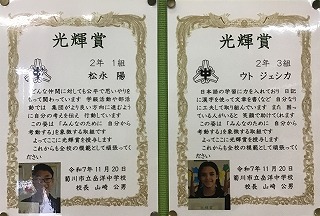 光輝賞
2年 1組
松永 陽
どんな仲間に対しても公平で思いやりをもって関わっています 学級活動や部活動では 集団がより良い方向に進むように自分の考えを伝え 行動しています
この姿は「みんなのために 自分から考動する」を象徴する取組です
よってここに光輝賞を授与します
これからも全校の模範として頑張ってください
令和7年11月20日
菊川市立岳洋中学校
校長 山崎 公男
光輝賞
2年 3組
ウト ジェシカ
日本語の学習に力を入れており 日記に漢字を使って文章を書くなど 自分なりに工夫して取り組んでいます また 困っている人がいると 笑顔で助けてくれます
この姿は「みんなのために 自分から考動する」を象徴する取組です
よってここに光輝賞を授与します
これからも全校の模範として頑張ってください
令和7年11月20日
菊川市立岳洋中学校
校長 山崎 公男